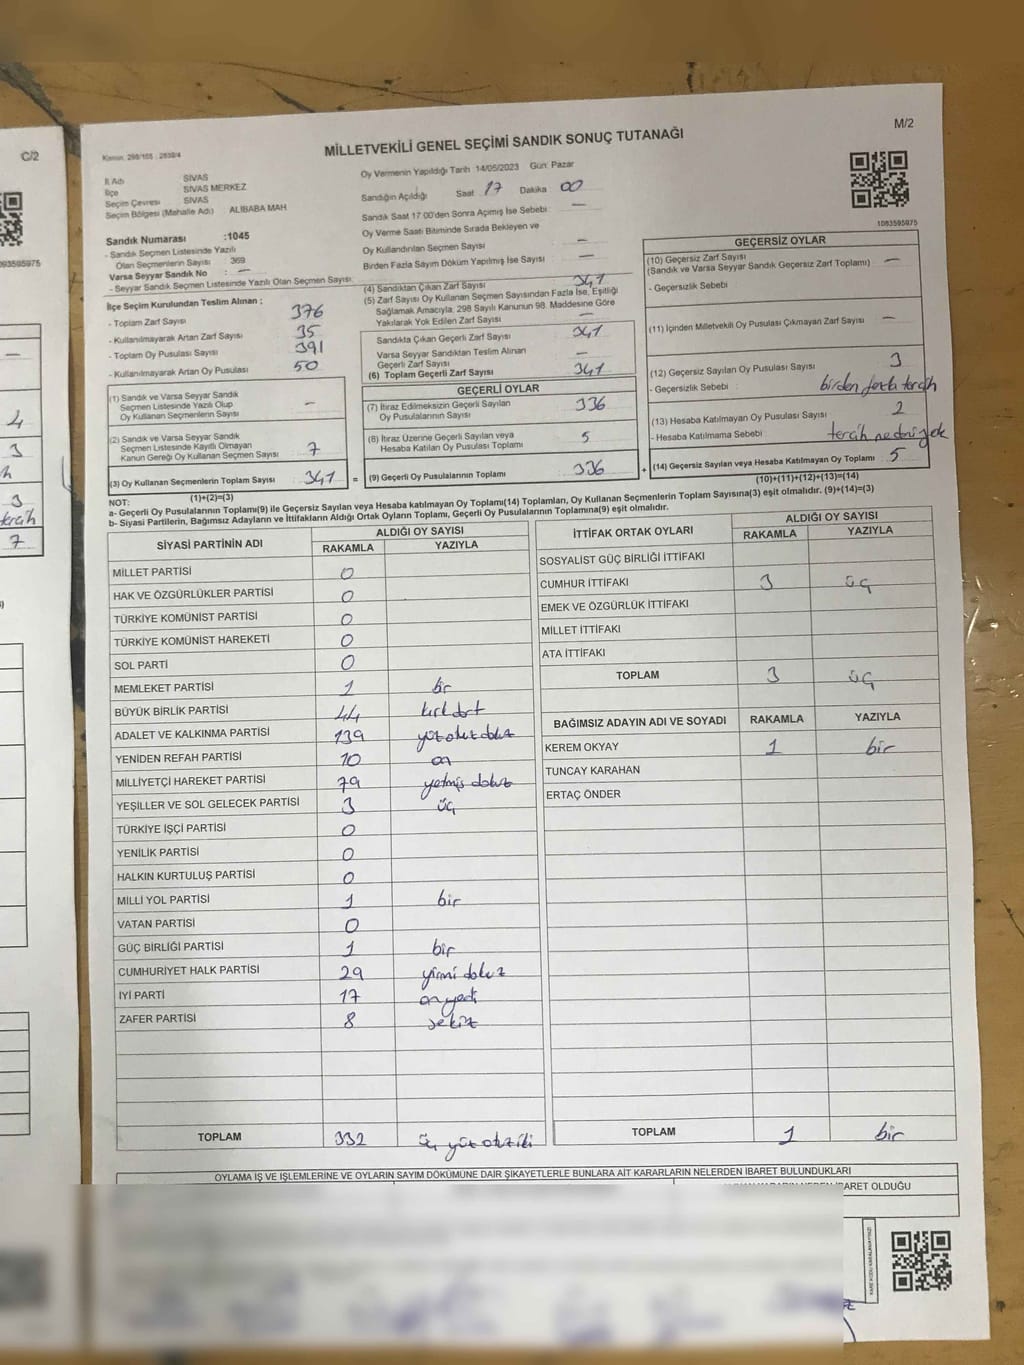 C/2
M/2
MİLLETVEKİLİ GENEL SEÇİMİ SANDIK SONUÇ TUTANAĞI
Kanun: 298/105 - 2839/4
İl Adı SİVAS
İlçe SİVAS MERKEZ
Seçim Çevresi SİVAS
Seçim Bölgesi (Mahalle Adı) ALİBABA MAH
Oy Vermenin Yapıldığı Tarih 14/05/2023 Gün: Pazar
Sandığın Açıldığı Saat 17 Dakika 00
Sandık Saat 17.00'den Sonra Açımış İse Sebebi: —
Oy Verme Saati Bitiminde Sırada Bekleyen ve
Oy Kullandırılan Seçmen Sayısı —
Birden Fazla Sayım Döküm Yapılmış İse Sayısı —
1083595975
Sandık Numarası :1045
- Sandık Seçmen Listesinde Yazılı
Olan Seçmenlerin Sayısı : 369
Varsa Seyyar Sandık No : —
- Seyyar Sandık Seçmen Listesinde Yazılı Olan Seçmen Sayısı:
İlçe Seçim Kurulundan Teslim Alınan ;
- Toplam Zarf Sayısı 376
- Kullanılmayarak Artan Zarf Sayısı 35
- Toplam Oy Pusulası Sayısı 391
- Kullanılmayarak Artan Oy Pusulası 50
(1) Sandık ve Varsa Seyyar Sandık
Seçmen Listesinde Yazılı Olup
Oy Kullanan Seçmenlerin Sayısı —
(2) Sandık ve Varsa Seyyar Sandık
Seçmen Listesinde Kayıtlı Olmayan
Kanun Gereği Oy Kullanan Seçmen Sayısı 7
(3) Oy Kullanan Seçmenlerin Toplam Sayısı 341
(1)+(2)=(3)
(4) Sandıktan Çıkan Zarf Sayısı 341
(5) Zarf Sayısı Oy Kullanan Seçmen Sayısından Fazla İse, Eşitliği
Sağlamak Amacıyla, 298 Sayılı Kanunun 98. Maddesine Göre
Yakılarak Yok Edilen Zarf Sayısı —
Sandıkta Çıkan Geçerli Zarf Sayısı 341
Varsa Seyyar Sandıktan Teslim Alınan
Geçerli Zarf Sayısı —
(6) Toplam Geçerli Zarf Sayısı 341
GEÇERLİ OYLAR
(7) İtiraz Edilmeksizin Geçerli Sayılan
Oy Pusulalarının Sayısı 336
(8) İtiraz Üzerine Geçerli Sayılan veya
Hesaba Katılan Oy Pusulası Toplamı 5
= (9) Geçerli Oy Pusulalarının Toplamı 336 +
GEÇERSİZ OYLAR
(10) Geçersiz Zarf Sayısı —
(Sandık ve Varsa Seyyar Sandık Geçersiz Zarf Toplamı)
- Geçersizlik Sebebi
(11) İçinden Milletvekili Oy Pusulası Çıkmayan Zarf Sayısı —
(12) Geçersiz Sayılan Oy Pusulası Sayısı 3
- Geçersizlik Sebebi : birden fazla tercih
(13) Hesaba Katılmayan Oy Pusulası Sayısı 2
- Hesaba Katılmama Sebebi : tercih
(14) Geçersiz Sayılan veya Hesaba Katılmayan Oy Toplamı 5
(10)+(11)+(12)+(13)=(14)
NOT:
a- Geçerli Oy Pusulalarının Toplamı(9) ile Geçersiz Sayılan veya Hesaba katılmayan Oy Toplamı(14) Toplamları, Oy Kullanan Seçmenlerin Toplam Sayısına(3) eşit olmalıdır. (9)+(14)=(3)
b- Siyasi Partilerin, Bağımsız Adayların ve İttifakların Aldığı Ortak Oyların Toplamı, Geçerli Oy Pusulalarının Toplamına(9) eşit olmalıdır.
SİYASİ PARTİNİN ADI ALDIĞI OY SAYISI
RAKAMLA YAZIYLA
MİLLET PARTİSİ 0
HAK VE ÖZGÜRLÜKLER PARTİSİ 0
TÜRKİYE KOMÜNİST PARTİSİ 0
TÜRKİYE KOMÜNİST HAREKETİ 0
SOL PARTİ 0
MEMLEKET PARTİSİ 1 bir
BÜYÜK BİRLİK PARTİSİ 44 kırkdört
ADALET VE KALKINMA PARTİSİ 139 yüzotuzdokuz
YENİDEN REFAH PARTİSİ 10 on
MİLLİYETÇİ HAREKET PARTİSİ 79 yetmiş dokuz
YEŞİLLER VE SOL GELECEK PARTİSİ 3 üç
TÜRKİYE İŞÇİ PARTİSİ 0
YENİLİK PARTİSİ 0
HALKIN KURTULUŞ PARTİSİ 0
MİLLİ YOL PARTİSİ 1 bir
VATAN PARTİSİ 0
GÜÇ BİRLİĞİ PARTİSİ 1 bir
CUMHURİYET HALK PARTİSİ 29 yirmi dokuz
İYİ PARTİ 17 onyedi
ZAFER PARTİSİ 8 sekiz
TOPLAM 332 üç yüz otuziki
İTTİFAK ORTAK OYLARI ALDIĞI OY SAYISI
RAKAMLA YAZIYLA
SOSYALİST GÜÇ BİRLİĞİ İTTİFAKI
CUMHUR İTTİFAKI 3 üç
EMEK VE ÖZGÜRLÜK İTTİFAKI
MİLLET İTTİFAKI
ATA İTTİFAKI
TOPLAM 3 üç
BAĞIMSIZ ADAYIN ADI VE SOYADI RAKAMLA YAZIYLA
KEREM OKYAY 1 bir
TUNCAY KARAHAN
ERTAÇ ÖNDER
TOPLAM 1 bir
OYLAMA İŞ VE İŞLEMLERİNE VE OYLARIN SAYIM DÖKÜMÜNE DAİR ŞİKAYETLERLE BUNLARA AİT KARARLARIN NELERDEN İBARET BULUNDUKLARI
OLDUĞU